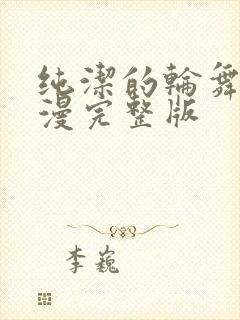 纯潔的輪舞
漫完整版
李巍